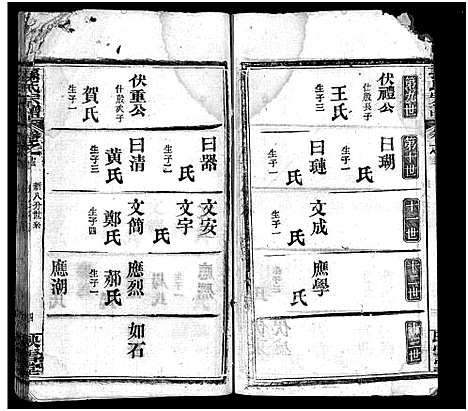 第九世
伏禮公
仕殷長子
王氏
生子二
伏重公
仕殷武子
賀氏
生子一
第十世
曰瑚
曰璉
氏
曰器
氏
生子二
曰清
黃氏
生子三
十一世
文成
氏
文安
文宇
氏
文簡
鄭氏
生子四
十二世
應學
應烈
郝氏
生子一
應潮
氏
十三世
如石
氏宗譜
新八升世系